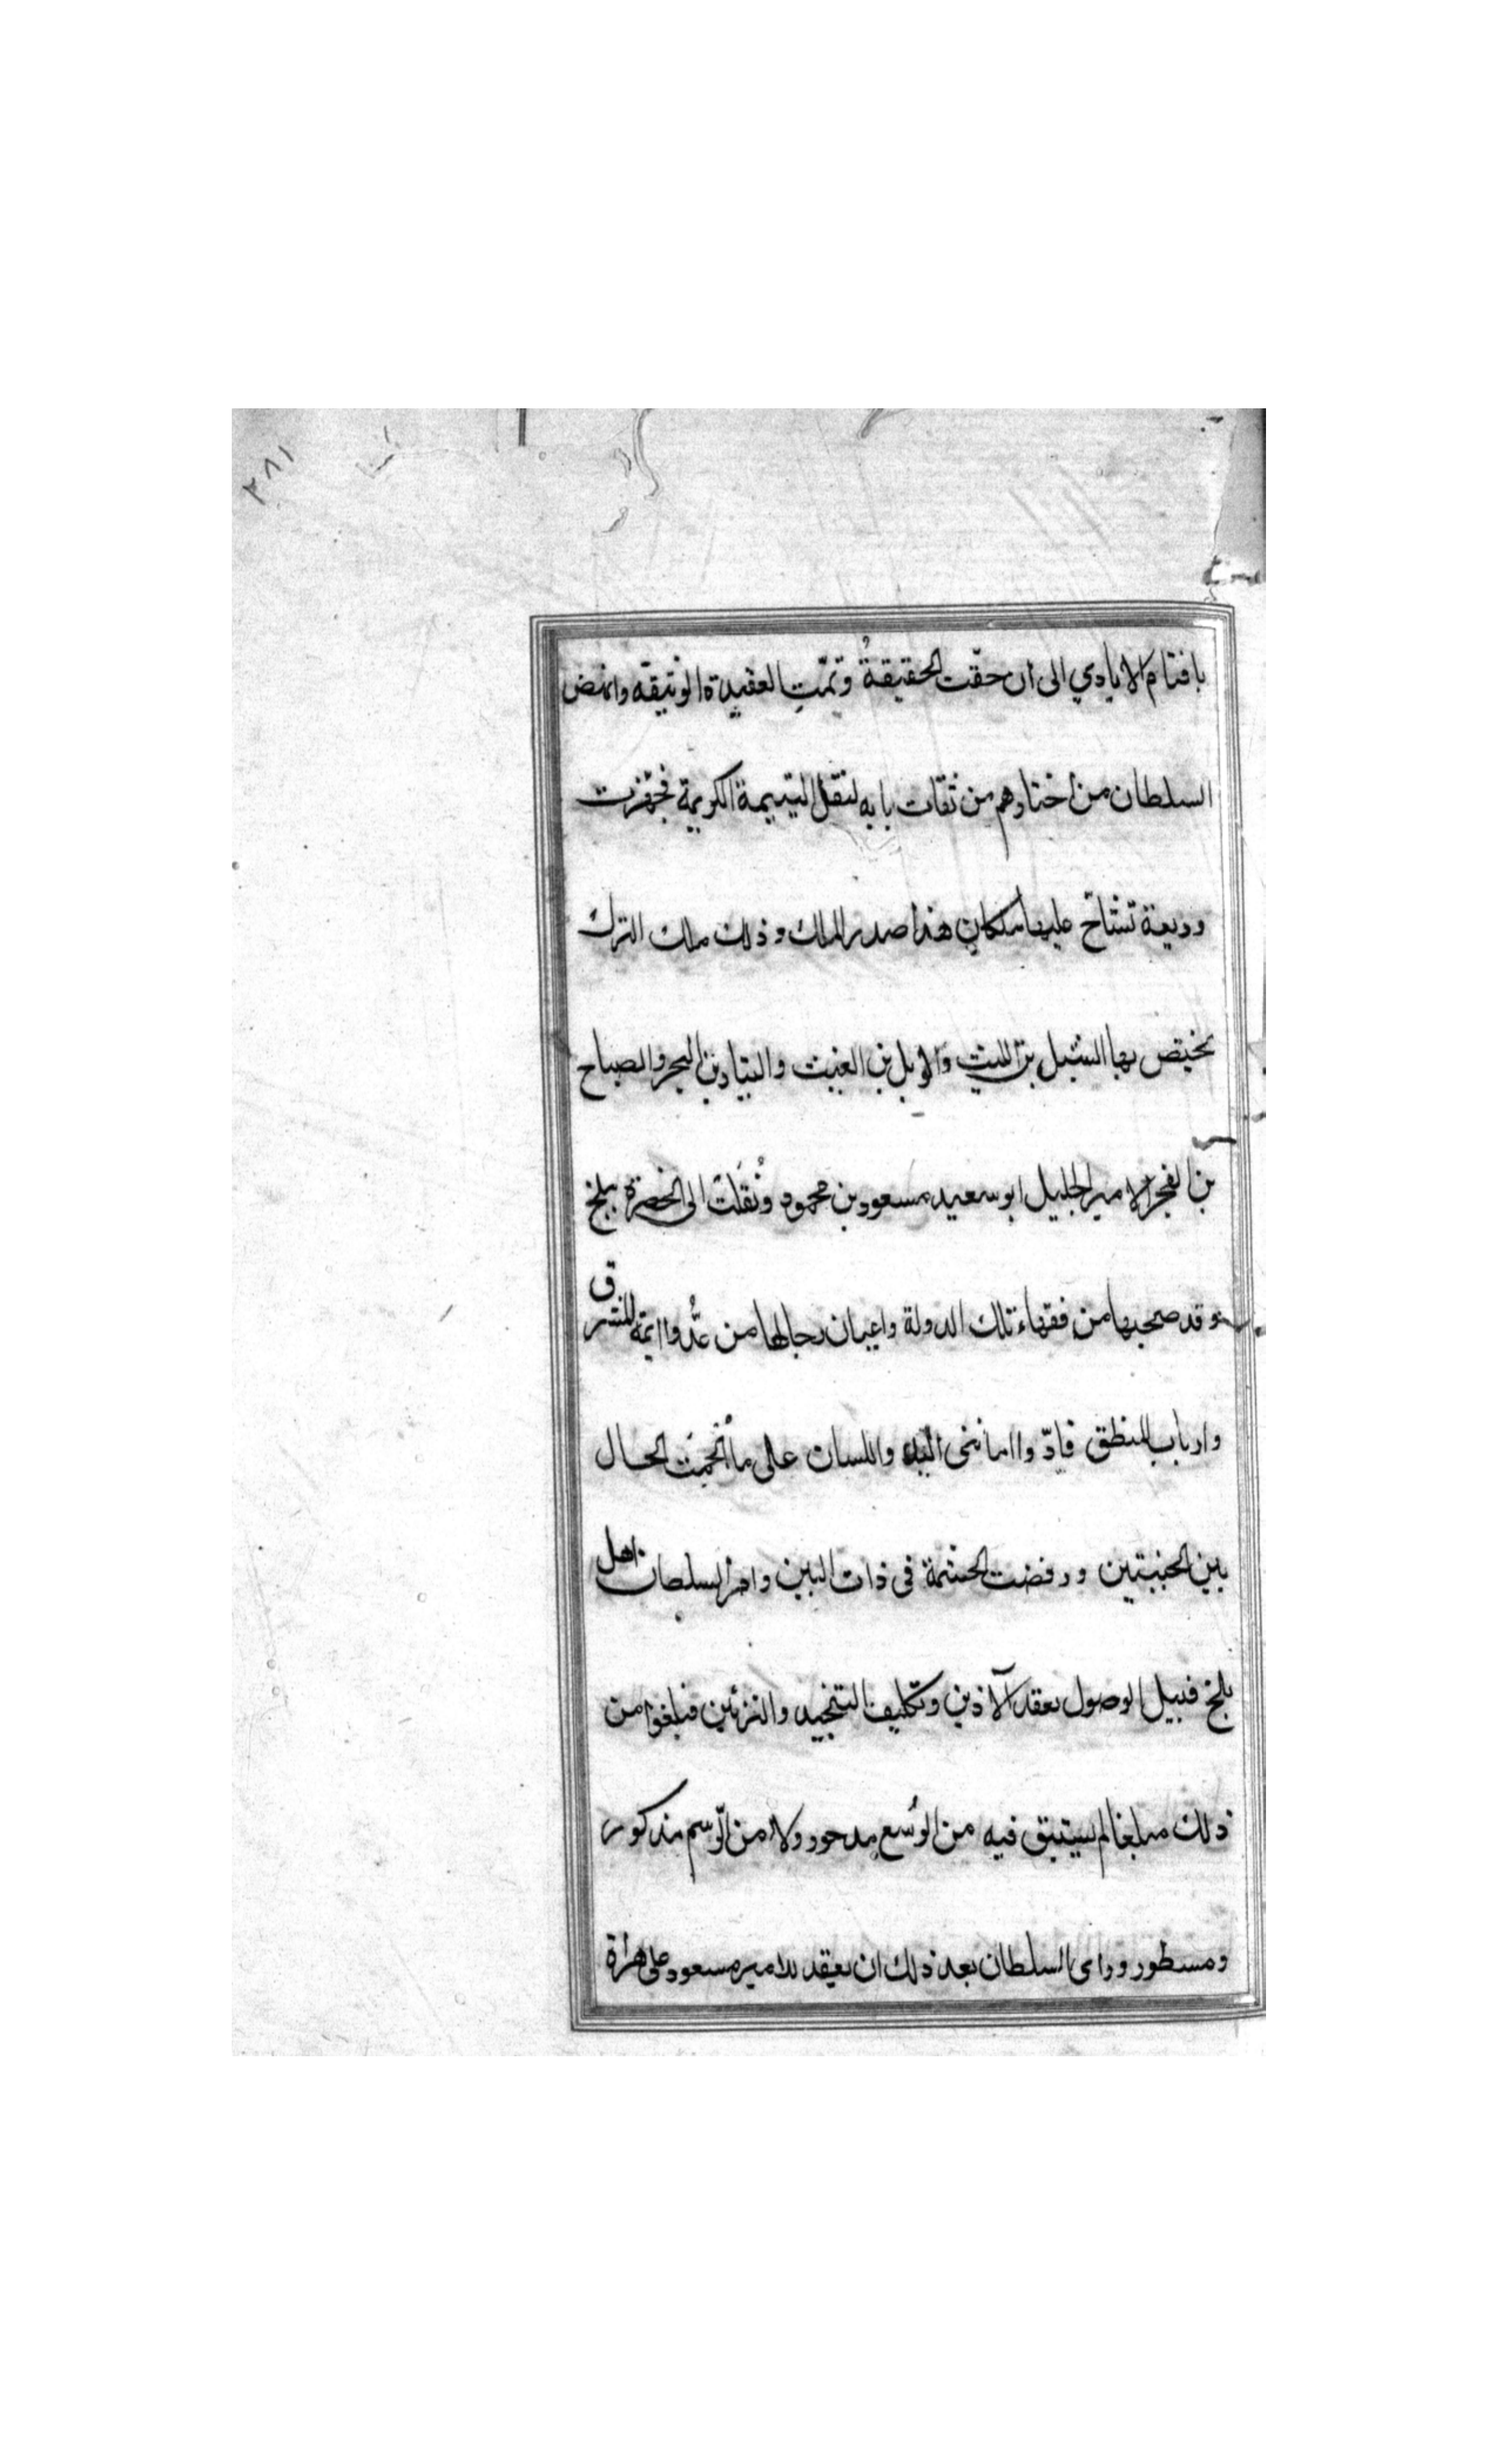 ٢٨١
بافتتام الايادي الى ان حقّت الحقيقةُ وتمّتِ العقيدة الوثيقه وانهض
السلطان من اختارهم من ثقات بابه لنقل اليتيمة الكريمة فجهّزت
وديعة تشاحّ عليها ملكان هذا صدر الملك وذلك ملك الترك
يختص بها الشبل بن الليث والوبل بن الغيث والتيار بن البحر والصباح
بن الفجر الامير الجليل ابو سعيد مسعود بن محمود ونُقلَت الى الحضرة ببلخ
وقد صحبها من فقهاء تلك الدولة واعيان رجالها من عُدّوا ايمة المشرق
وارباب المنطق فادّوا امانتى اليد واللسان على ما الحال
بين الجنبتين ورفضت الحشمة فى ذات البين وامر السلطان اهل
بلخ قبيل الوصول بعقد الآذين وتكليف التنجيد والتزيين فبلغوا من
ذلك مبلغا لم يستبق فيه من الوُسع مدحور ولا من الرّسم مذكور
ومسطور وراى السلطان بعد ذلك ان يعقد للامير مسعود على هراة